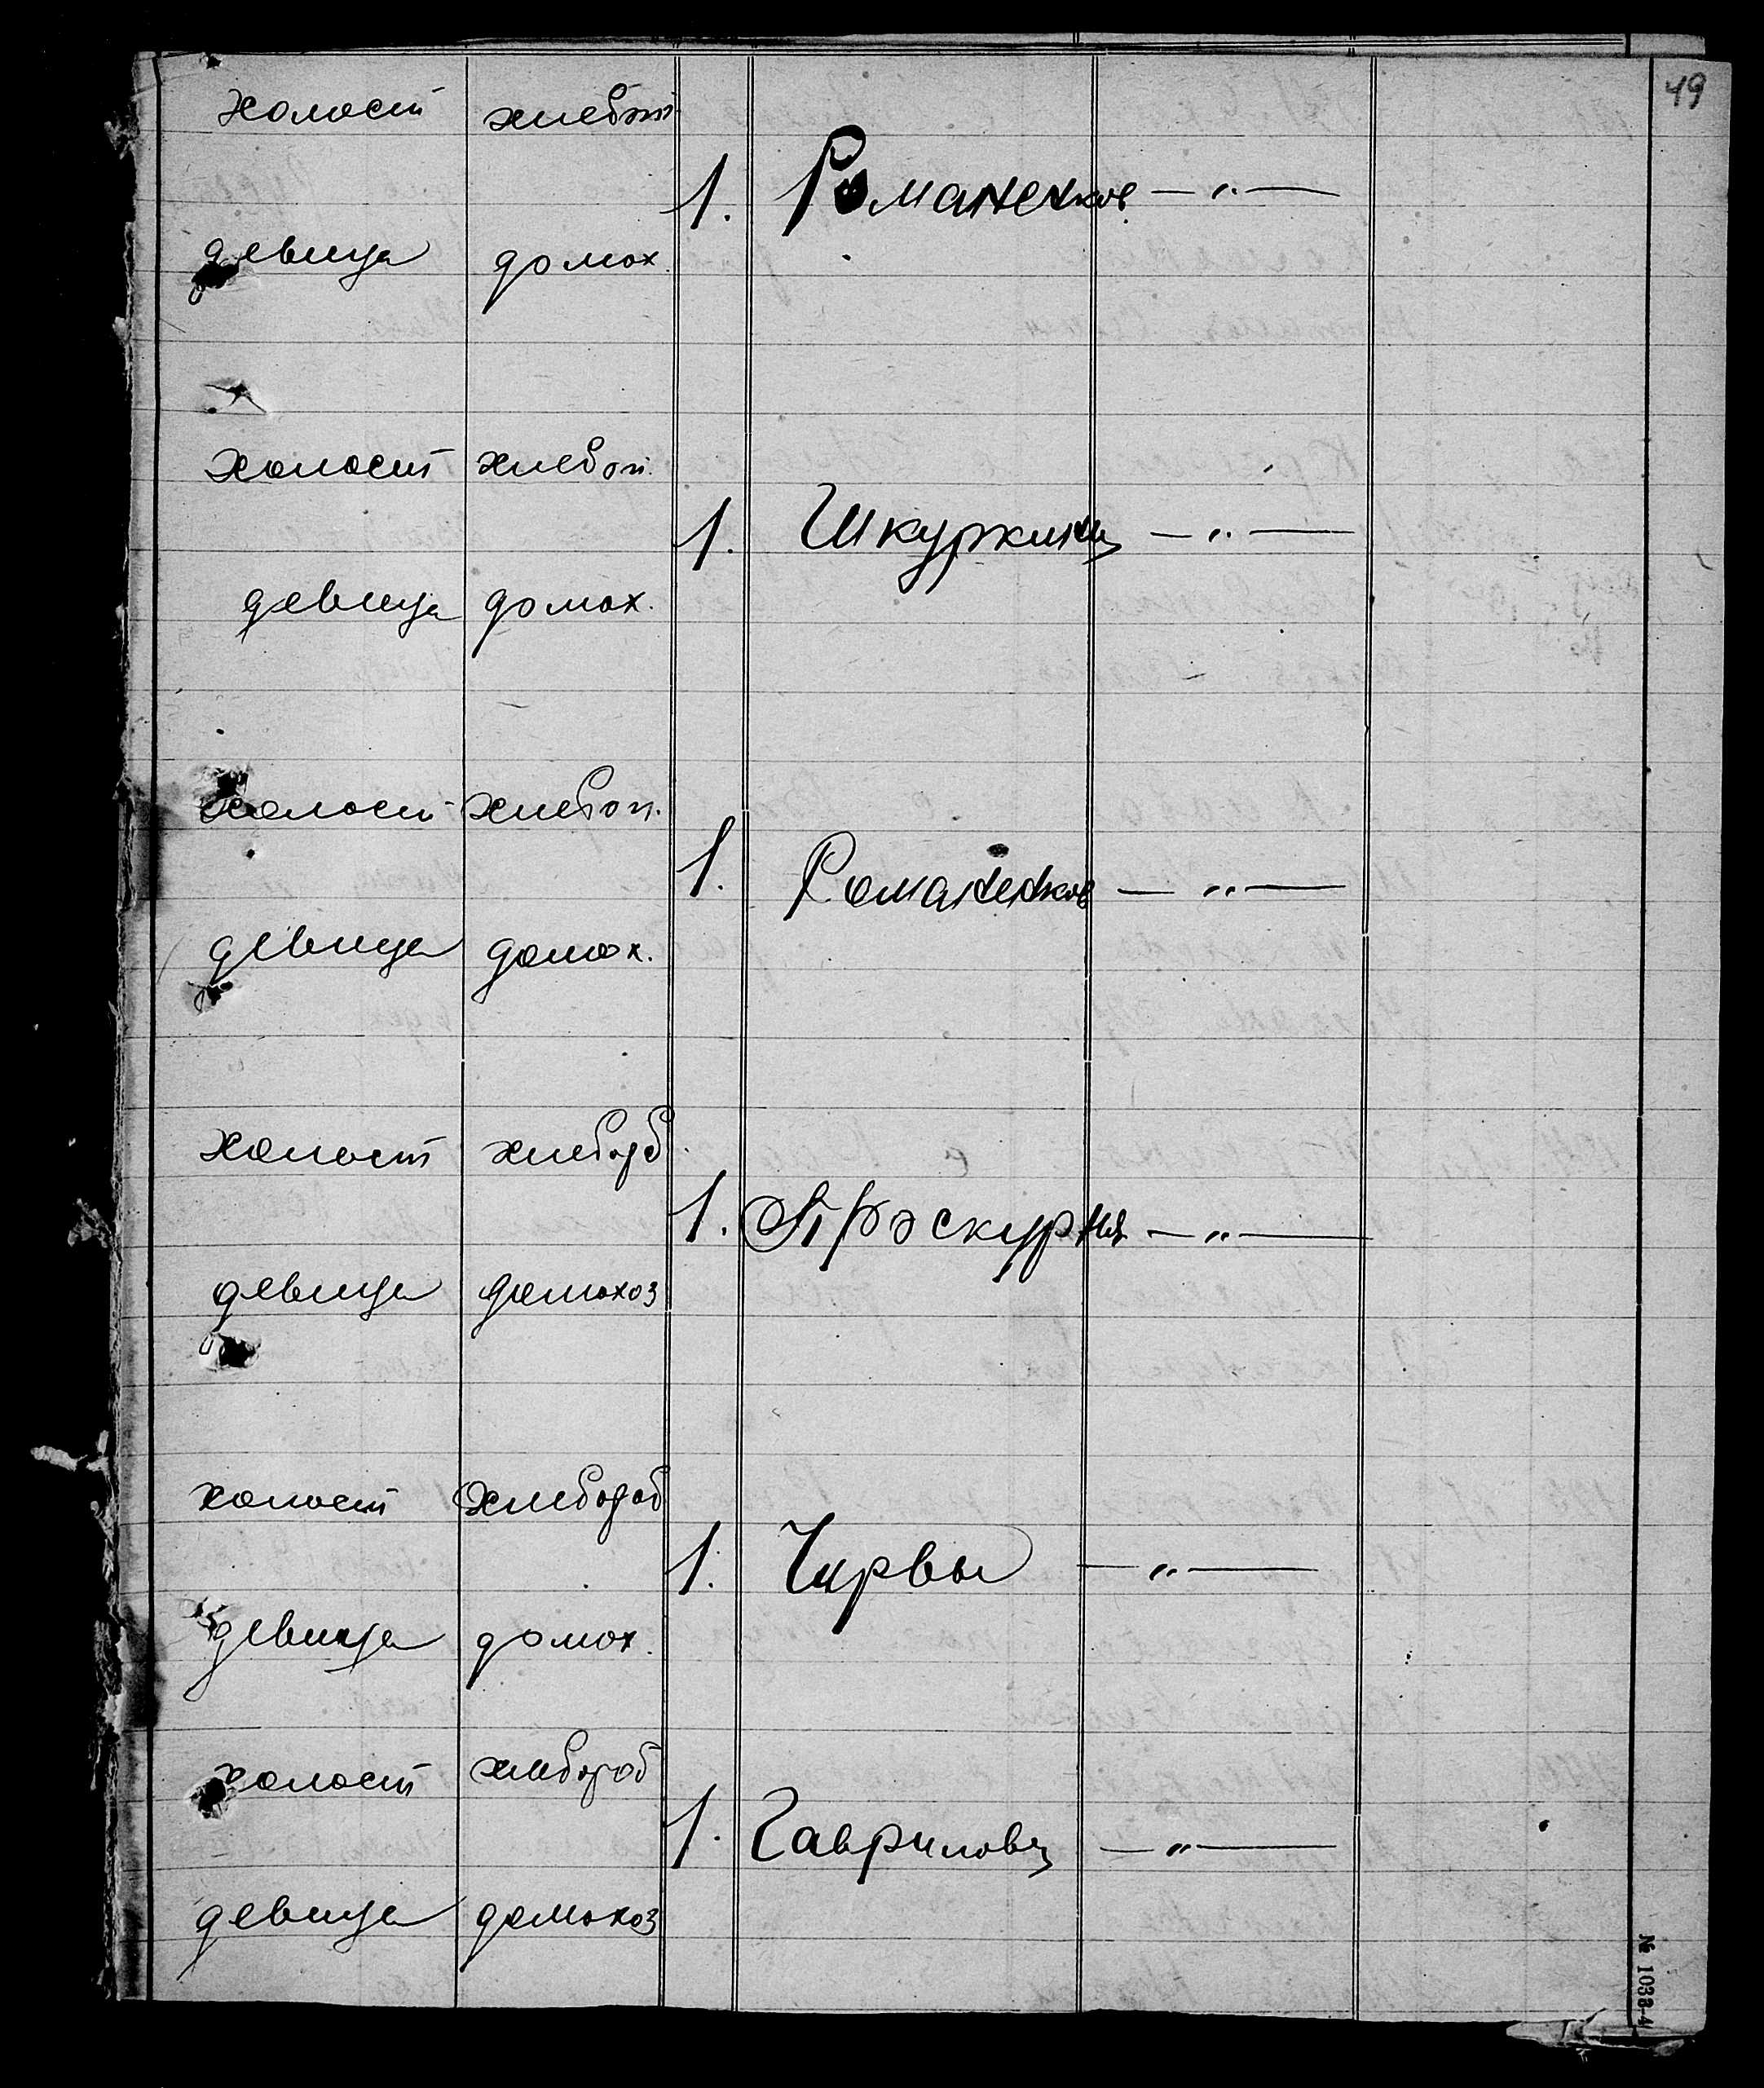 49
холост хлебоп.
1. Романенков — „ —
девица домох.
холост хлебоп.
1. Шкуркины — „ —
девица домох.
холост хлебоп.
1. Романенков — „ —
девица домох.
холост хлебороб
1. Проскурня — „ —
девица домохоз
холост хлебороб
1. Чирвы — „ —
девица домох.
холост хлебороб
1. Гавриловы — „ —
девица домохоз
№ 1038-4